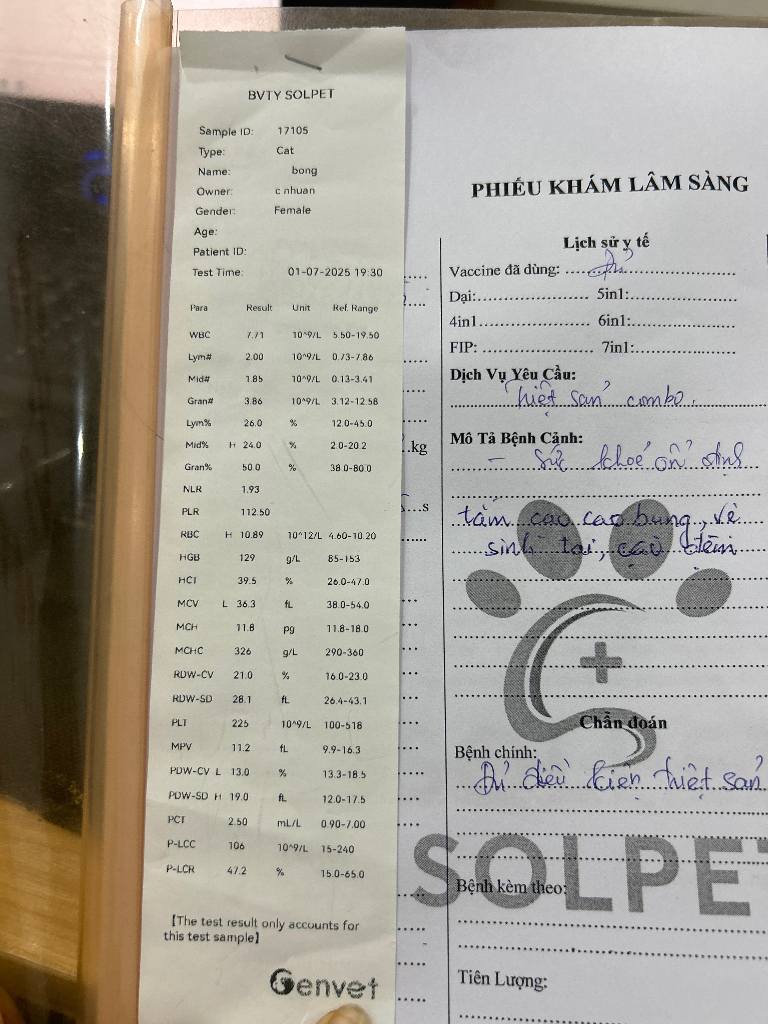 BVTY SOLPET
Sample ID: 17105
Type: Cat
Name: bong
Owner: c nhuan
Gender: Female
Age:
Patient ID:
Test Time: 01-07-2025 19:30
Para Result Unit Ref. Range
WBC 7.71 10^9/L 5.50-19.50
Lym# 2.00 10^9/L 0.73-7.86
Mid# 1.85 10^9/L 0.13-3.41
Gran# 3.86 10^9/L 3.12-12.58
Lym% 26.0 % 12.0-45.0
Mid% H 24.0 % 2.0-20.2
Gran% 50.0 % 38.0-80.0
NLR 1.93
PLR 112.50
RBC H 10.89 10^12/L 4.60-10.20
HGB 129 g/L 85-153
HCT 39.5 % 26.0-47.0
MCV L 36.3 fL 38.0-54.0
MCH 11.8 pg 11.8-18.0
MCHC 326 g/L 290-360
RDW-CV 21.0 % 16.0-23.0
RDW-SD 28.1 fL 26.4-43.1
PLT 225 10^9/L 100-518
MPV 11.2 fL 9.9-16.3
PDW-CV L 13.0 % 13.3-18.5
PDW-SD H 19.0 fL 12.0-17.5
PCT 2.50 mL/L 0.90-7.00
P-LCC 106 10^9/L 15-240
P-LCR 47.2 % 15.0-65.0
【The test result only accounts for
this test sample】
Genvet
kg
s
PHIẾU KHÁM LÂM SÀNG
Lịch sử y tế
Vaccine đã dùng: đủ
Dại: 5in1:
4in1 6in1:
FIP: 7in1:
Dịch Vụ Yêu Cầu:
Triệt sản combo.
Mô Tả Bệnh Cảnh:
- Sức khoẻ ổn định
tắm cạo cạo bụng, vệ
sinh tai,
Chẩn đoán
Bệnh chính:
Đủ điều kiện triệt sản
SOLPET
Bệnh kèm theo:
Tiên Lượng: